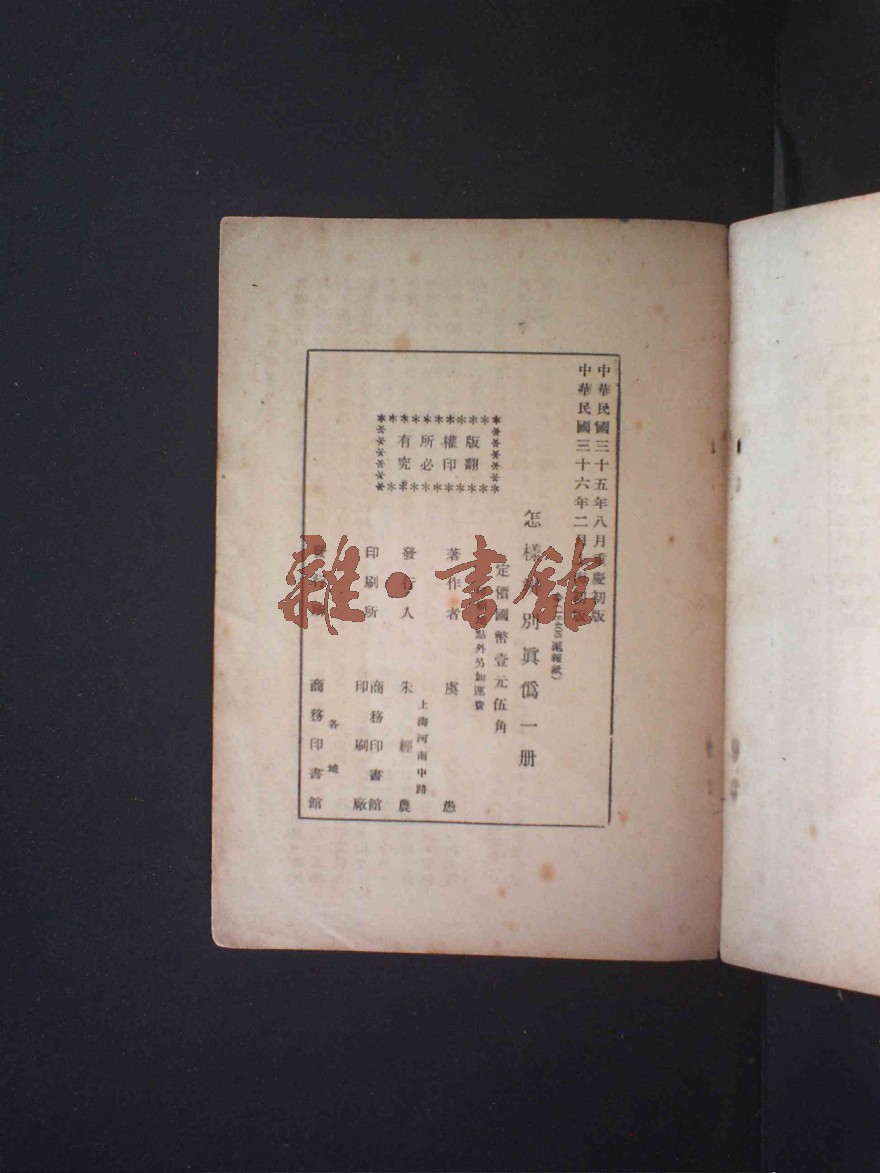 中華民國三十五年八月重慶初版
中華民國三十六年二月初版
滬報紙)
怎樣別眞僞一册
定價國幣壹元伍角
點外另加運費
版權所有
翻印必究
著作者 虞愚
上海河南中路
發行人 朱經農
印刷所 商務印書館
印刷廠
各地
商務印書館
雜·書館